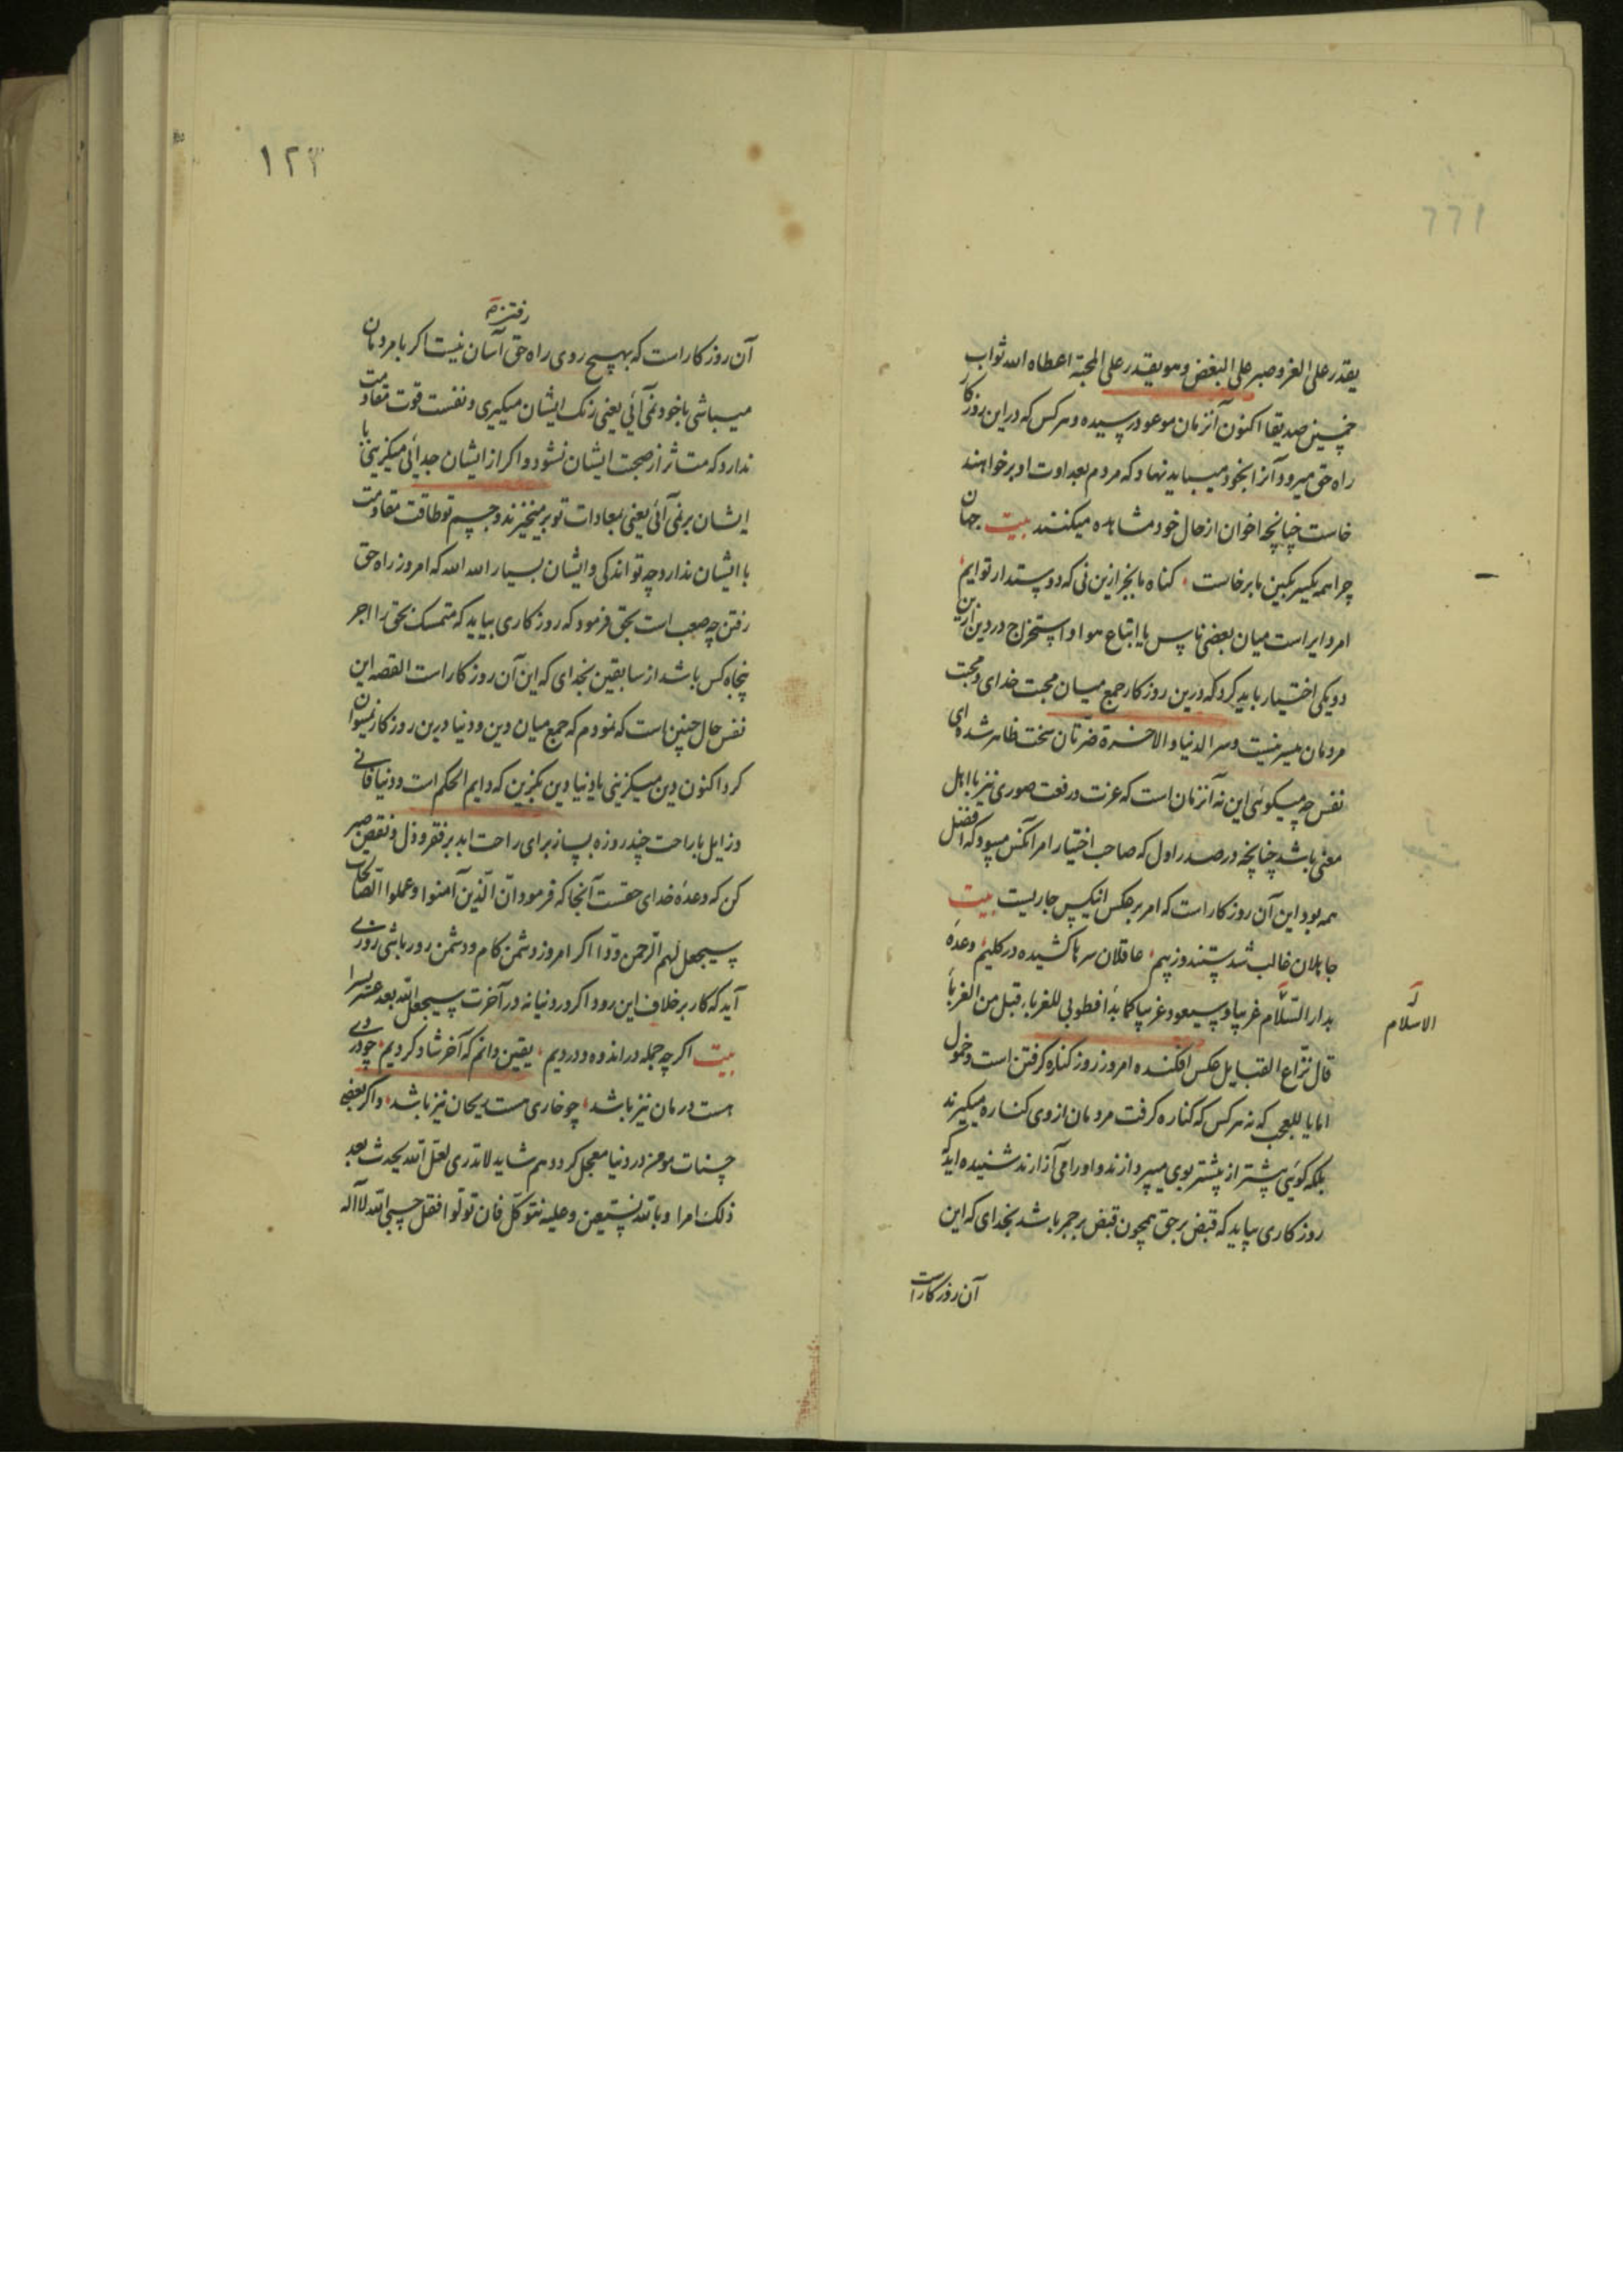 یقدر علی العز و صبر علی البغض و هو یقدر علی المحبة اعطاه الله ثواب
خمسین صدیقا اکنون آنزمان موعود رسیده و هر کس که در این روزکار
راه حق میرود آنرا بخود میباید نهاد که مردم بعداوت او برخواهند
خاست چنانچه اخوان از حال خود مشاهده میکنند بیت جهان
چرا همه یکسر بکین ما برخاست کناه ما بجز ازین نی که دوستدار توایم
امر دایر است میان بعضی ناس یا اتباع هوا و استخراج در دین ازین
دو یکی اختیار باید کرد که درین روزکار جمع میان محبت خدای و محبت
مردمان میسر نیست و سر الدنیا و الاخرة ضرتان سخت ظاهر شده ای
نفس چه میکوئی این نه آنزمان است که عزت و رفعت صوری نیز با اهل
معنی باشد چنانچه در صدر اول که صاحب اختیار امر آنکس میبود که افضل
همه بود این آن روزکار است که امر برعکس جاریست بیت
جاهلان غالب شدستند و ز بیم عاقلان سرها کشیده در کلیم وعده
بدار السلام غریبا و سیعود غریبا کما بدا فطوبی للغرباء قیل من الغرباء
الاسلام
قال نزاع القبایل عکس افکنده امروز روز کناره کرفتن است و خمول
اما یا للعجب که نه هر کس که کناره کرفت مردمان از وی کناره میکیرند
بلکه کوئی بیشتر از پیشتر بوی میپردازند و اورا می آزارند شنیده اید که
روزکاری بیاید که قبض بر حق همچون قبض بر جمر باشد بخدای که این
آن روزکار است
١٢٣
رفتن
آن روزکار است که بهیچ روی راه حق آسان نیست اکر با مردمان
میباشی با خود نمی آئی یعنی رنک ایشان میکیری و نفست قوت مقاومت
ندارد که متاثر از صحبت ایشان نشود و اکر از ایشان جدائی میکزینی با
ایشان بر نمی آئی یعنی بمعادات تو بر میخیزند و جسم تو طاقت مقاومت
با ایشان ندارد چه تو اندکی و ایشان بسیار الله الله که امروز راه حق
رفتن چه صعب است بحق فرمود که روزکاری بیاید که متمسک بحق را اجر
پنجاه کس باشد از سابقین بخدای که این آن روزکار است القصه این
نفس حال چنین است که نمودم که جمع میان دین و دنیا درین روزکار نمیتوان
کرد اکنون دین میکزینی یا دنیا دین بکزین که دایم الحکم است و دنیا فانی
و زایل با راحت چند روزه بساز برای راحت ابد بر فقر و ذل و نقص صبر
کن که وعده خدای حقست آنجا که فرمود ان الذین آمنوا و عملوا الصالحات
سیجعل لهم الرحمن ودا اکر امروز دشمن کام و دشمن رو باشی روزی
آید که کار برخلاف این رود اکر در دنیا نه در آخرت سیجعل الله بعد عسر یسرا
بیت اکر چه جمله در اندوه و دردیم یقین دانم که آخر شاد کردیم چو دردی
هست درمان نیز باشد چو خاری هست ریحان نیز باشد و اکر بعضی
حسنات مومن در دنیا معجل کردد هم شاید لا تدری لعل الله یحدث بعد
ذلک امرا و بالله نستعین و علیه نتوکل فان تولوا فقل حسبی الله لا اله